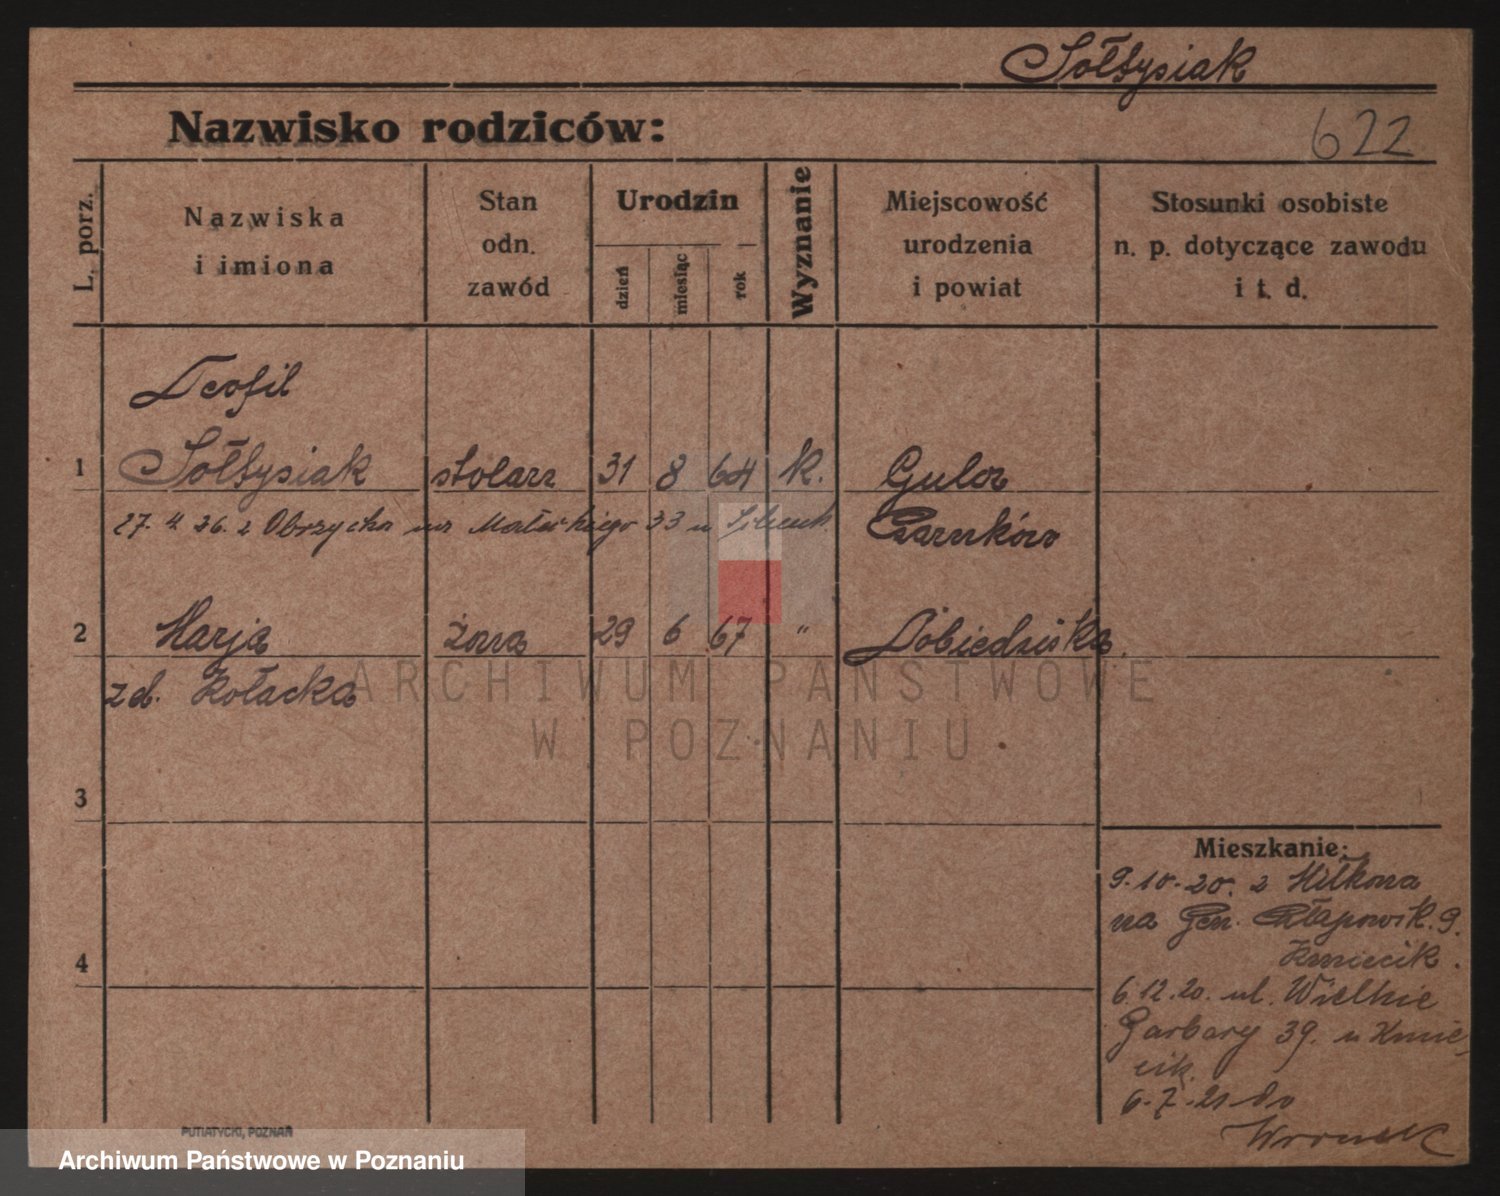 Sołtysiak
Nazwisko rodziców:
622
L. porz.
Nazwiska
i imiona
Stan
odn.
zawód
Urodzin
dzień
miesiąc
rok
Wyznanie
Miejscowość
urodzenia
i powiat
Stosunki osobiste
n. p. dotyczące zawodu
i t. d.
Teofil
1 Sołtysiak stolarz 31 8 64 k. Gulcz
27. 4. 26. z Obrzycka na 33 u
Czarnków
2 Marja żona 29 6 67 " Pobiedziska.
zd. Kołacka
ARCHIWUM PAŃSTWOWE
W POZNANIU
3
4
Mieszkanie:
9.10.20. z
na Gen. Chłapowsk. 9.
Kmiecik.
6.12.20. ul. Wielkie
Garbary 39. u Kmie-
cik.
6.7.21 do
Wronek
PUTIATYCKI, POZNAŃ
Archiwum Państwowe w Poznaniu